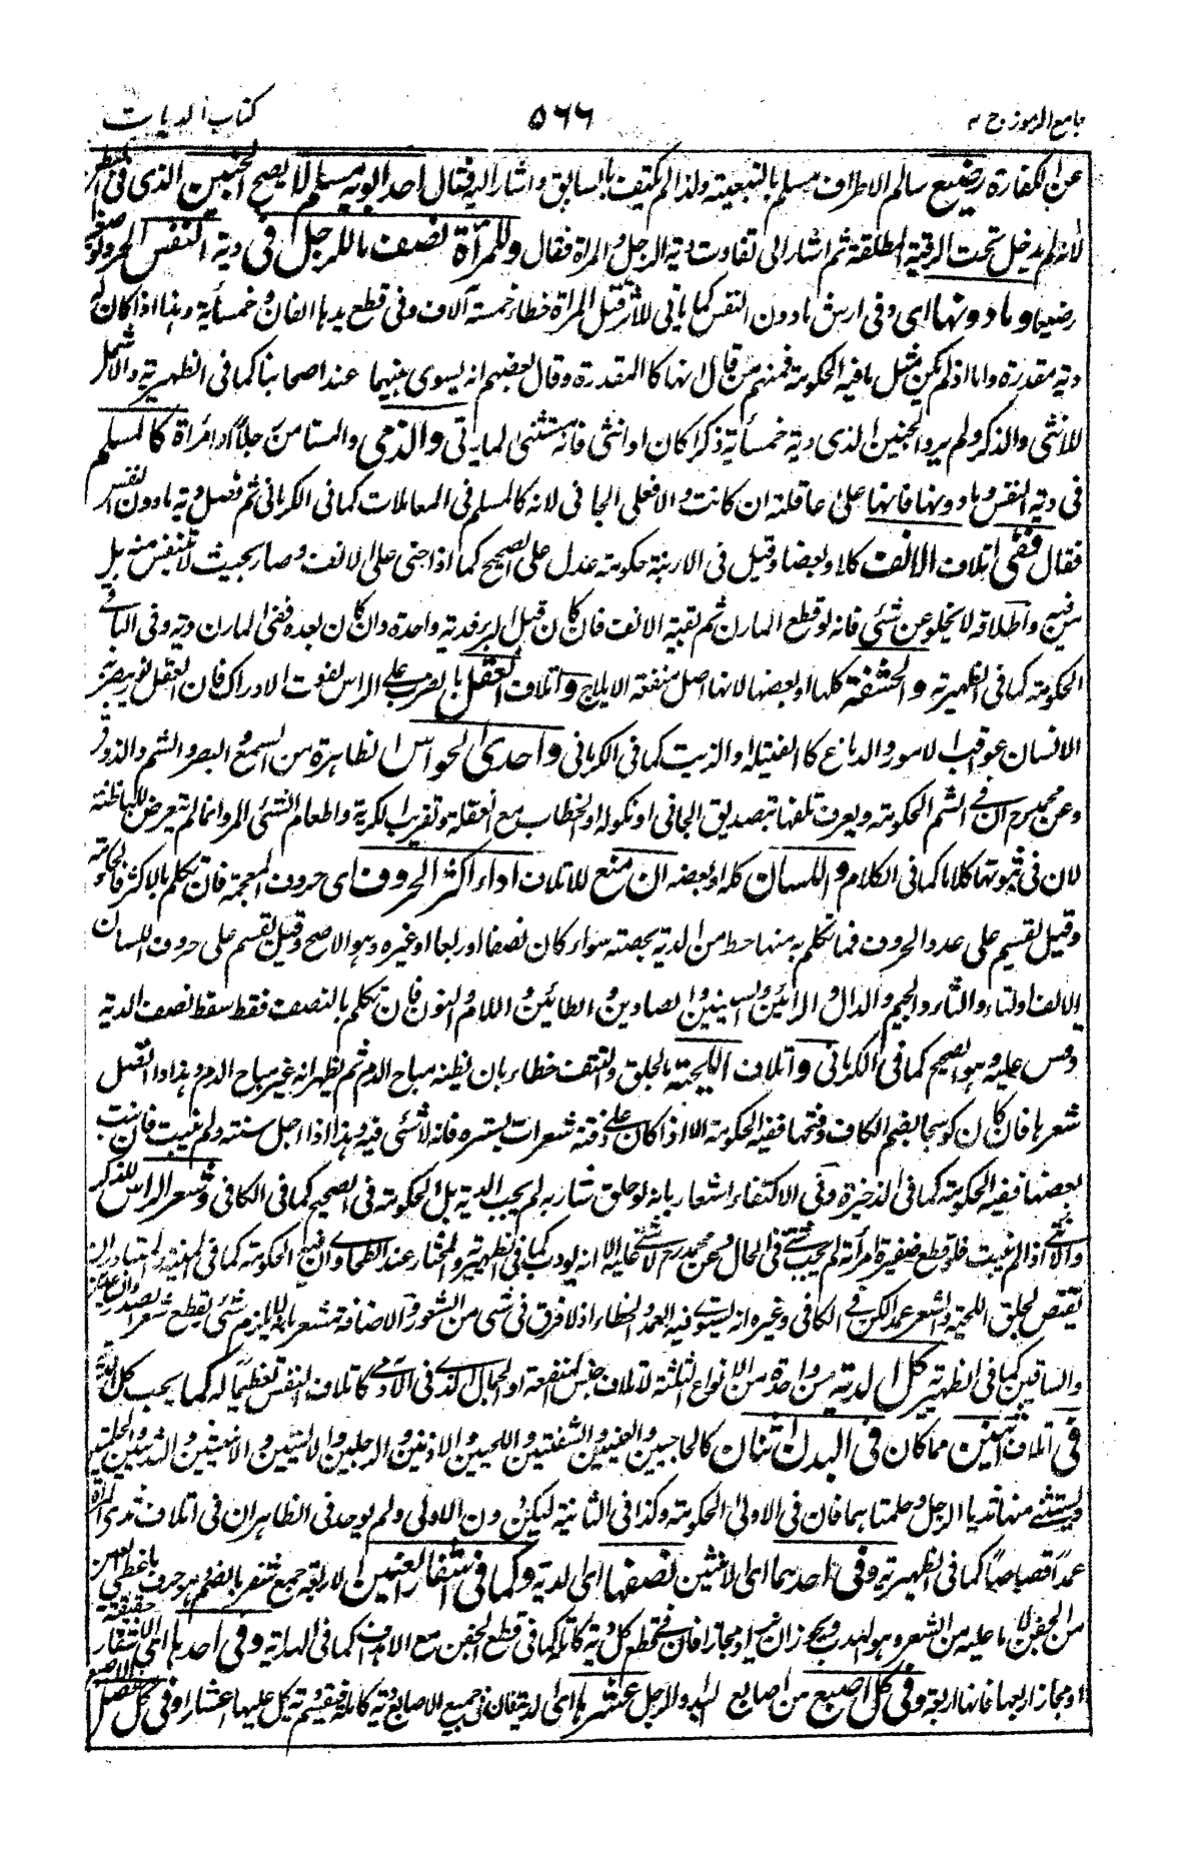 جامع الرموز ج ٢ ٥٦٦ كتاب الديات
عن الكفارة رضيع سالم الاطراف مسلم بالتبعية ولذا لم يكتف بالسابق واشار اليه فقال احد ابويه مسلم لا يصح الجنين الذى فى البطن
لانه لم يدخل تحت الرقبة المطلقة ثم اشار الى تفاوت دية الرجل والمراة فقال وللمرأة نصف ما للرجل فى دية النفس الحر ولو صغيرا
رضيعا وما دونها اى وفى ارش ما دون النفس كما ياتى للاثر فقتل المراة خطاء خمسة آلاف وفى قطع يدها الفان وخمسمأية وهذا اذا كان له
دية مقدرة واما اذا لم يكن مثل ما فيه الحكومة فمنهم من قال انها كالمقدرة وقال بعضهم انه يسوى بينهما عند اصحابنا كما فى الظهيرية والاشمل
للانثى والذكر ولم يرد الجنين الذى دية خمسمأية ذكرا كان او انثى فانه مستثنى لما ياتى والذمى والمستامن رجلا او امرأة كالمسلم
فى دية النفس وما دونها فانها على عاقلته ان كانت والا فعلى الجانى لانه كالمسلم فى المعاملات كما فى الكرمانى ثم فصل دية ما دون النفس
فقال ففى اتلاف الانف كلا او بعضا وقيل فى الارنبة حكومة عدل على الصحيح كما اذا جنى على الانف وصار بحيث لا يتنفس منه بل
من فيه واطلاقه لا يخلو عن شئى فانه لو قطع المارن ثم بقية الانف فان كان قبل البرء فدية واحدة وان كان بعده ففى المارن دية وفى الباقى
الحكومة كما فى الظهيرية والحشفة كلها او بعضها لانها اصل منفعة الايلاج واتلاف العقل بالضرب على الراس لفوت الادراك فان العقل نور يبصر به
الانسان عواقب الامور والدماغ كالفتيلة او الزيت كما فى الكرمانى واحدى الحواس الظاهرة من السمع والبصر والشم والذوق
وعن محمد رح ان فى الشم الحكومة ويعرف تلفها بتصديق الجانى او نكوله او الخطاب مع الغفلة وتقريب الكريه واطعام الشئى المر وانما لم يتعرض للباطنة
لان فى ثبوتها كلاما كما فى الكلام واللسان كله او بعضه ان منع للاتلاف اداء اكثر الحروف اى حروف المعجمة فان تكلم بالاكثر فالحكومة
وقيل يقسم على عدد الحروف فما تكلم به منها حط من الدية بحصته سواء كان نصفا او ربعا او غيره وهو الاصح وقيل يقسم على حروف اللسان
الالف والتاء والثاء والجيم والدال والرائين والسينين والصادين والطائين واللام والنون فان تكلم بالنصف فقط سقط نصف الدية
وقس عليه وهو الصحيح كما فى الكرمانى واتلاف اللحية بالحلق والنتف خطاء بان يظنه مباح الدم ثم يظهر انه غير مباح الدم وهذا اذا لم يقل
شعرها فان كان كوسجا بضم الكاف وفتحها ففيه الحكومة الا اذا كان على ذقنه شعرات يسيره فانه لا شئى فيه وهذا اذا اجل سنة ولم ينبت فان نبت
بعضها ففيه الحكومة كما فى الذخيرة وفى الاكتفاء اشعار بانه لو حلق شاربه لم يجب الدية بل الحكومة فى الصحيح كما فى الكافى وشعر الراس للذكر
والانثى اذا لم ينبت فلو قطع ضفيرة امرأة لم يجب شئى فى الحال وعن محمد رح لا شئى عليه الا انه يودب كما فى الظهيرية والمختار عند الطحاوى
يقتص لحلق اللحية والشعر عمدا لكن فى الكافى وغيره انه يستوى فيه العمد والخطاء اذ لا فرق فى شئى من الشعور والاضافة مشعر بانه لا يلزم شئى بقطع شعر الصدر
والساقين كما فى الظهيرية كل الدية من واحدة من الانواع الثلثة لاتلاف جنس المنفعة او الجمال الذى فى الآدمى كاتلاف النفس تعظيما له كما يجب كل الدية
فى اتلاف اثنين مما كان فى البدن اثنان كالحاجبين والعينين والشفتين واللحيين والاذنين والرجلين والاليتين والانثيين والثديين والحلمتين
ويستثنى منها ثديا الرجل وحلمتاهما فان فى الاولى الحكومة وكذا فى الثانية ليكن دون الاولى ولم يوجد فى الظاهر ان فى اتلاف ثدى المراة
عمدا قصاصا كما فى الظهيرية وفى احدهما اى الاثنين نصفها اى الدية وكما فى اشفار العينين الاربعة جمع شفر بالضم وهو حرف ما غطى العين
من الجفن لا ما عليه من الشعر وهو الهدب ويجوز ان يراد مجازا فان فى قطع كل دية كاملة كما فى قطع الجفن مع الاهداب كما فى الهداية وفى احدها اى الاشفار
او مجازا ربعها فانها اربعة وفى كل اصبع من اصابع اليد والرجل عشرها اى الدية فان فى جميع الاصابع دية كاملة فيقسم دية كل عليها اعشارا وفى كل مفصل